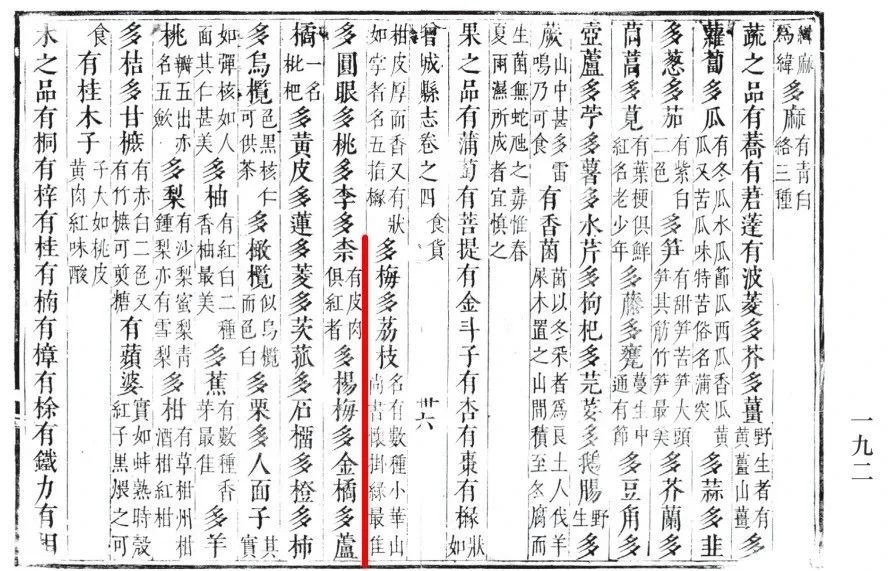 緝麻爲緯多麻有青白絡三種
蔬之品有蕎有莙蓬有波菱多芥多薑野生者有黃薑山薑多
蘿蔔多瓜有冬瓜水瓜節瓜西瓜香瓜黃瓜又苦瓜味特苦俗名蒲突多蒜多韭
多葱多茄有紫白二色多笋有甜笋苦笋大頭笋其筋竹笋最美多芥蘭多
茼蒿多莧有葉梗俱鮮紅名老少年多藤多蕹蔓生中通有節多豆角多
壺蘆多苧多薯多水芹多枸杞多芫荽多鵝腸野生多
蕨山中甚多雷鳴乃可食有香菌菌以冬采者爲良土人伐羊屎木置之山間積至冬腐而
生菌無蛇虺之毒惟春夏雨濕所成者宜慎之
果之品有蒲萄有菩提有金斗子有杏有棗有櫞狀如
曾城縣志卷之四 食貨 廿六
柑皮厚面香又有狀如字者名五指櫞多梅多荔枝名有數種小華山尚書懷掛綠最佳
多圓眼多桃多李多柰有皮肉俱紅者多楊梅多金橘多蘆
橘一名枇杷多黃皮多蓮多菱多茨菰多石榴多橙多柿
多烏欖色黑核仁可供茶多橄欖似烏欖而色白多栗多人面子其實
如彈核如人面其仁甚美多柚有紅白二種香柚最美多蕉有數種香芽最佳多羊
桃瓣五出亦名五歛多梨有沙梨蜜梨青鍾梨亦有雪梨多柑有草柑州柑酒柑紅柑
多桔多甘樜有赤白二色又有竹樜可煎糖有蘋婆實如蚌熟時殼紅子黑煨之可
食有桂木子子大如桃皮黃肉紅味酸
木之品有桐有梓有桂有楠有樟有有鐵力有
一九二